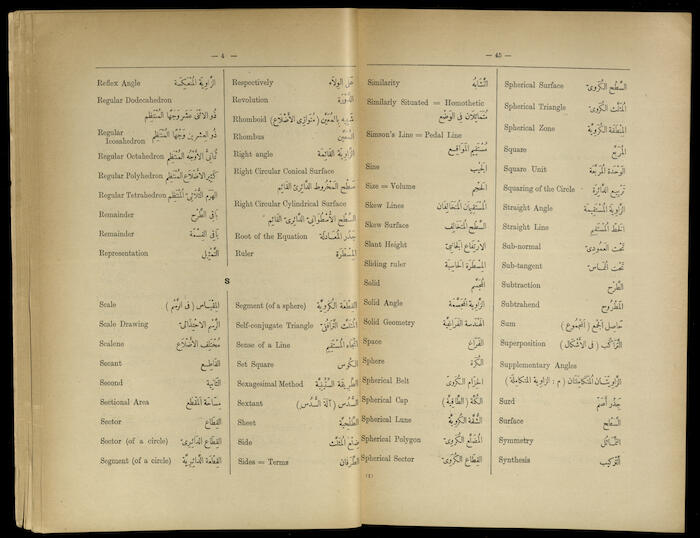 — 4 —
Reflex Angle الزاوية المنعكسة
Regular Dodecahedron
ذو الاثنى عشر وجها المنتظم
Regular Icosahedron ذو العشرين وجها المنتظم
Regular Octahedron ثمانى الأوجه المنتظم
Regular Polyhedron كثير الأضلاع المنتظم
Regular Tetrahedron الهرم الثلاثى المنتظم
Remainder باقى الطرح
Remainder باقى القسمة
Representation التمثيل
Respectively على الولاء
Revolution الدورة
Rhomboid شبيه بالمعين (متوازى الأضلاع)
Rhombus المعين
Right angle الزاوية القائمة
Right Circular Conical Surface
سطح المخروط الدائرى القائم
Right Circular Cylindrical Surface
السطح الأسطوانى الدائرى القائم
Root of the Equation جذر المعادلة
Ruler المسطرة
S
Scale المقياس (فى الرسم)
Scale Drawing الرسم الاحتذائى
Scalene مختلف الأضلاع
Secant القاطع
Second الثانية
Sectional Area مساحة المقطع
Sector القطاع
Sector (of a circle) القطاع الدائرى
Segment (of a circle) القطعة الدائرية
Segment (of a sphere) القطعة الكروية
Self-conjugate Triangle المثلث الترافقى
Sense of a Line اتجاه المستقيم
Set Square الكوس
Sexagesimal Method الطريقة الستينية
Sextant السدس (آلة السدس)
Sheet الطلحية
Side ضلع المثلث
Sides = Terms الطرفان
— 45 —
Similarity التشابه
Similarly Situated = Homothetic
متماثلان فى الوضع
Simson's Line = Pedal Line
مستقيم المواقع
Sine الجيب
Size = Volume الحجم
Skew Lines المستقيمان المتخالفان
Skew Surface السطح المتخالف
Slant Height الارتفاع الجانبى
Sliding ruler المسطرة الحاسبة
Solid المجسم
Solid Angle الزاوية المجسمة
Solid Geometry الهندسة الفراغية
Space الفراغ
Sphere الكرة
Spherical Belt الحزام الكروى
Spherical Cap الكمة (الطاقية)
Spherical Lune الشقة الكروية
Spherical Polygon المضلع الكروى
Spherical Sector القطاع الكروى
Spherical Surface السطح الكروى
Spherical Triangle المثلث الكروى
Spherical Zone المنطقة الكروية
Square المربع
Square Unit الوحدة المربعة
Squaring of the Circle تربيع الدائرة
Straight Angle الزاوية المستقيمة
Straight Line الخط المستقيم
Sub-normal تحت العمودى
Sub-tangent تحت المماس
Subtraction الطرح
Subtrahend المطروح
Sum حاصل الجمع (المجموع)
Superposition التراكب (فى الأشكال)
Supplementary Angles
الزاويتان المتكاملتان (م : الزاوية المتكاملة)
Surd جذر أصم
Surface السطح
Symmetry التماثل
Synthesis التركيب